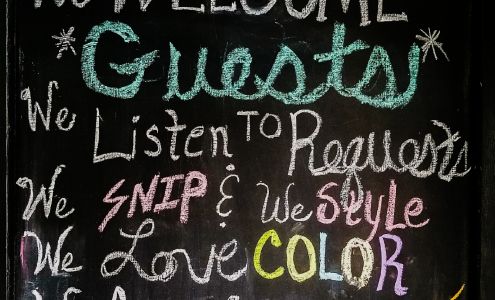 WELCOME
*Guests*
We Listen TO Requests
We SNIP & We Style
We Love COLOR
We